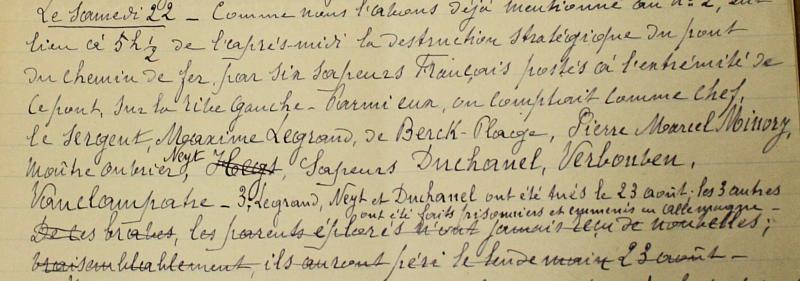 Le Samedi 22 – Comme nous l'avons déjà mentionné au n° 2, eut
lieu à 5h ½ de l'après-midi la destruction stratégique du pont
du chemin de fer, par six sapeurs Français postés à l'extrémité de
ce pont, sur la rive gauche – Parmi eux, on comptait comme chef,
le sergent, Maxime Legrand, de Berck-Plage, Pierre Marcel Minory,
maître ouvrier, Neyt, Sapeurs Duchanel, Verbouben,
Vanclampatre – 3, Legrand, Neyt et Duchanel ont été tués le 23 août; les 3 autres
ont été faits prisonniers et emmenés en Allemagne –
De ces braves, les parents éplorés n'ont jamais reçu de nouvelles;
vraisemblablement, ils auront péri le lendemain 23 août –